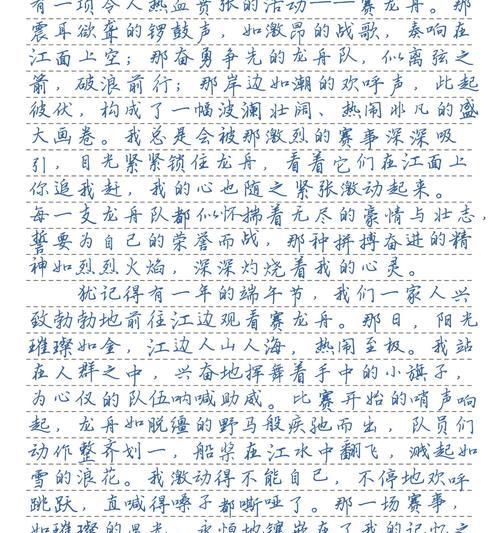 有一项令人热血贲张的活动——赛龙舟。那
震耳欲聋的锣鼓声，如激昂的战歌，奏响在
江面上空；那奋勇争先的龙舟队，似离弦之
箭，破浪前行；那岸边如潮的欢呼声，此起
彼伏，构成了一幅波澜壮阔、热闹非凡的盛
大画卷。我总是会被那激烈的赛事深深吸
引，目光紧紧锁住龙舟，看着它们在江面上
你追我赶，我的心也随之紧张激动起来。
每一支龙舟队都似怀揣着无尽的豪情与壮志，
誓要为自己的荣誉而战，那种拼搏奋进的精
神如烈烈火焰，深深灼烧着我的心灵。
犹记得有一年的端午节，我们一家人兴
致勃勃地前往江边观看赛龙舟。那日，阳光
璀璨如金，江边人山人海，热闹至极。我站
在人群之中，兴奋地挥舞着手中的小旗子，
为心仪的队伍呐喊助威。比赛开始的哨声响
起，龙舟如脱缰的野马般疾驰而出，队员们
动作整齐划一，船桨在江水中翻飞，溅起如
雪的浪花。我激动得不能自已，不停地欢呼
跳跃，直喊得嗓子都嘶哑了。那一场赛事，
如璀璨的星光，永恒地镶嵌在了我的记忆之